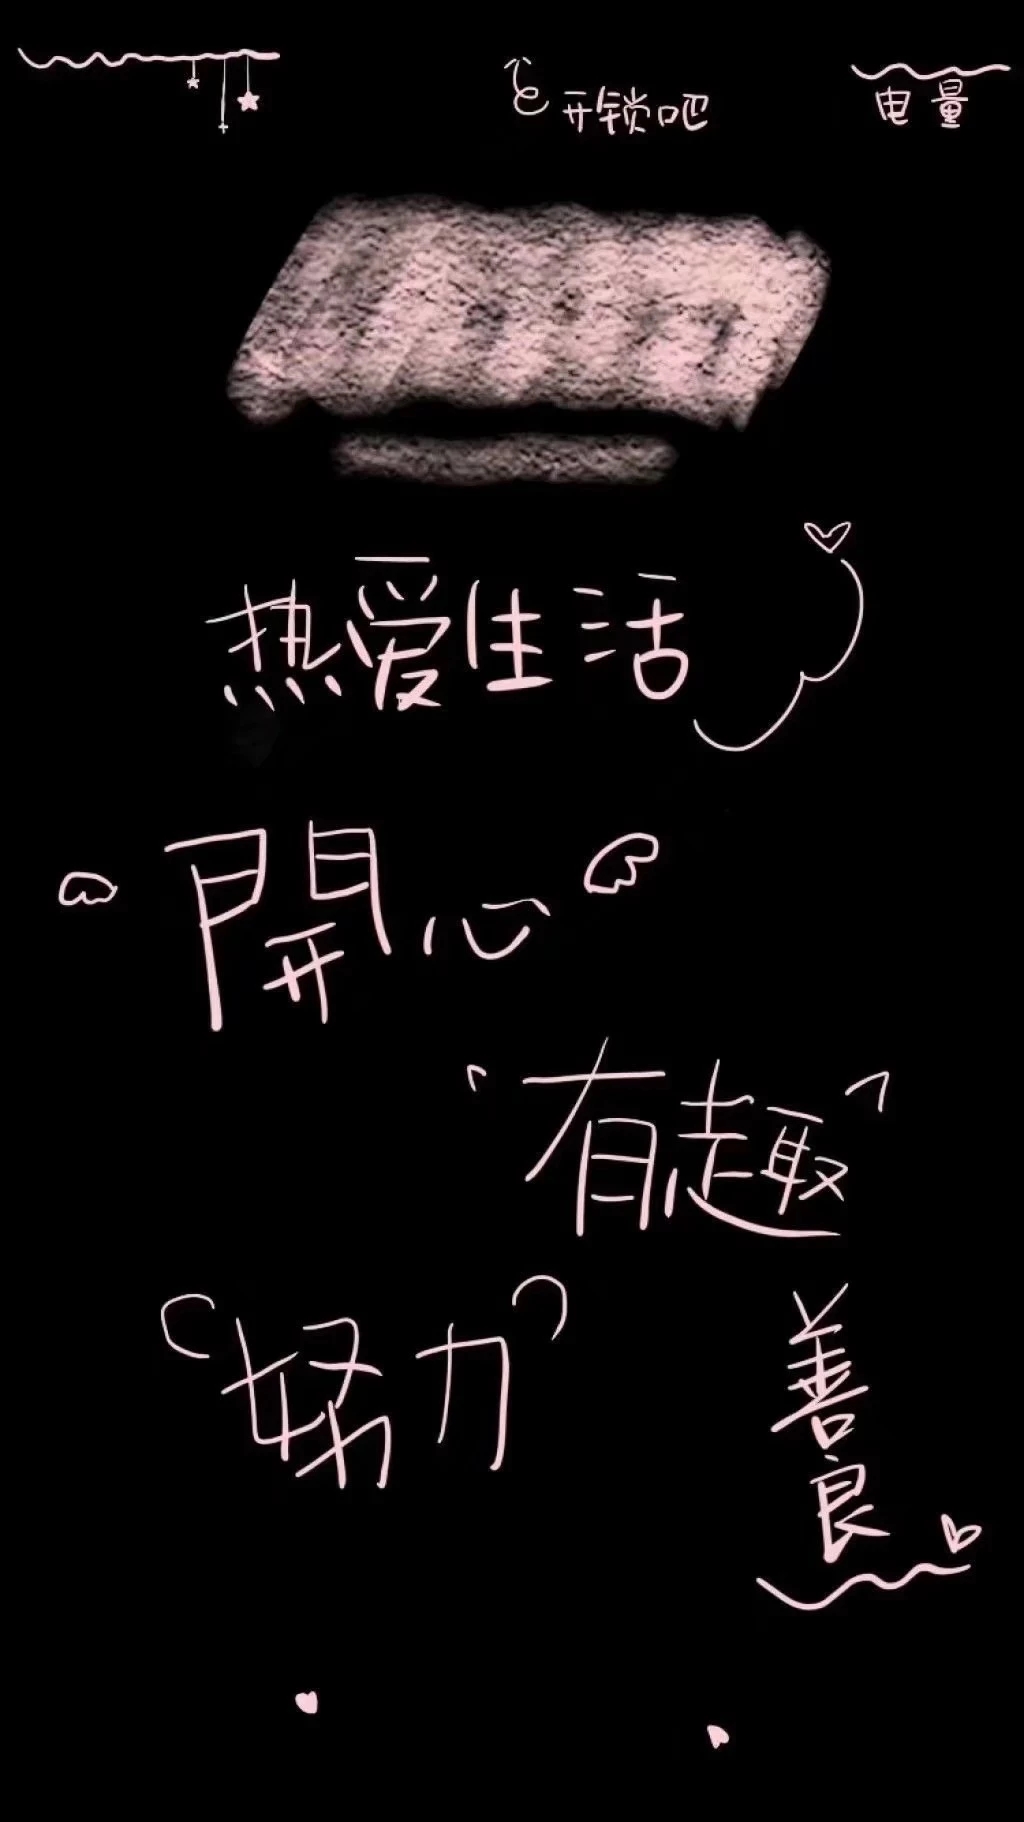 开锁吧
电量
热爱生活
開心
有趣
努力
善良